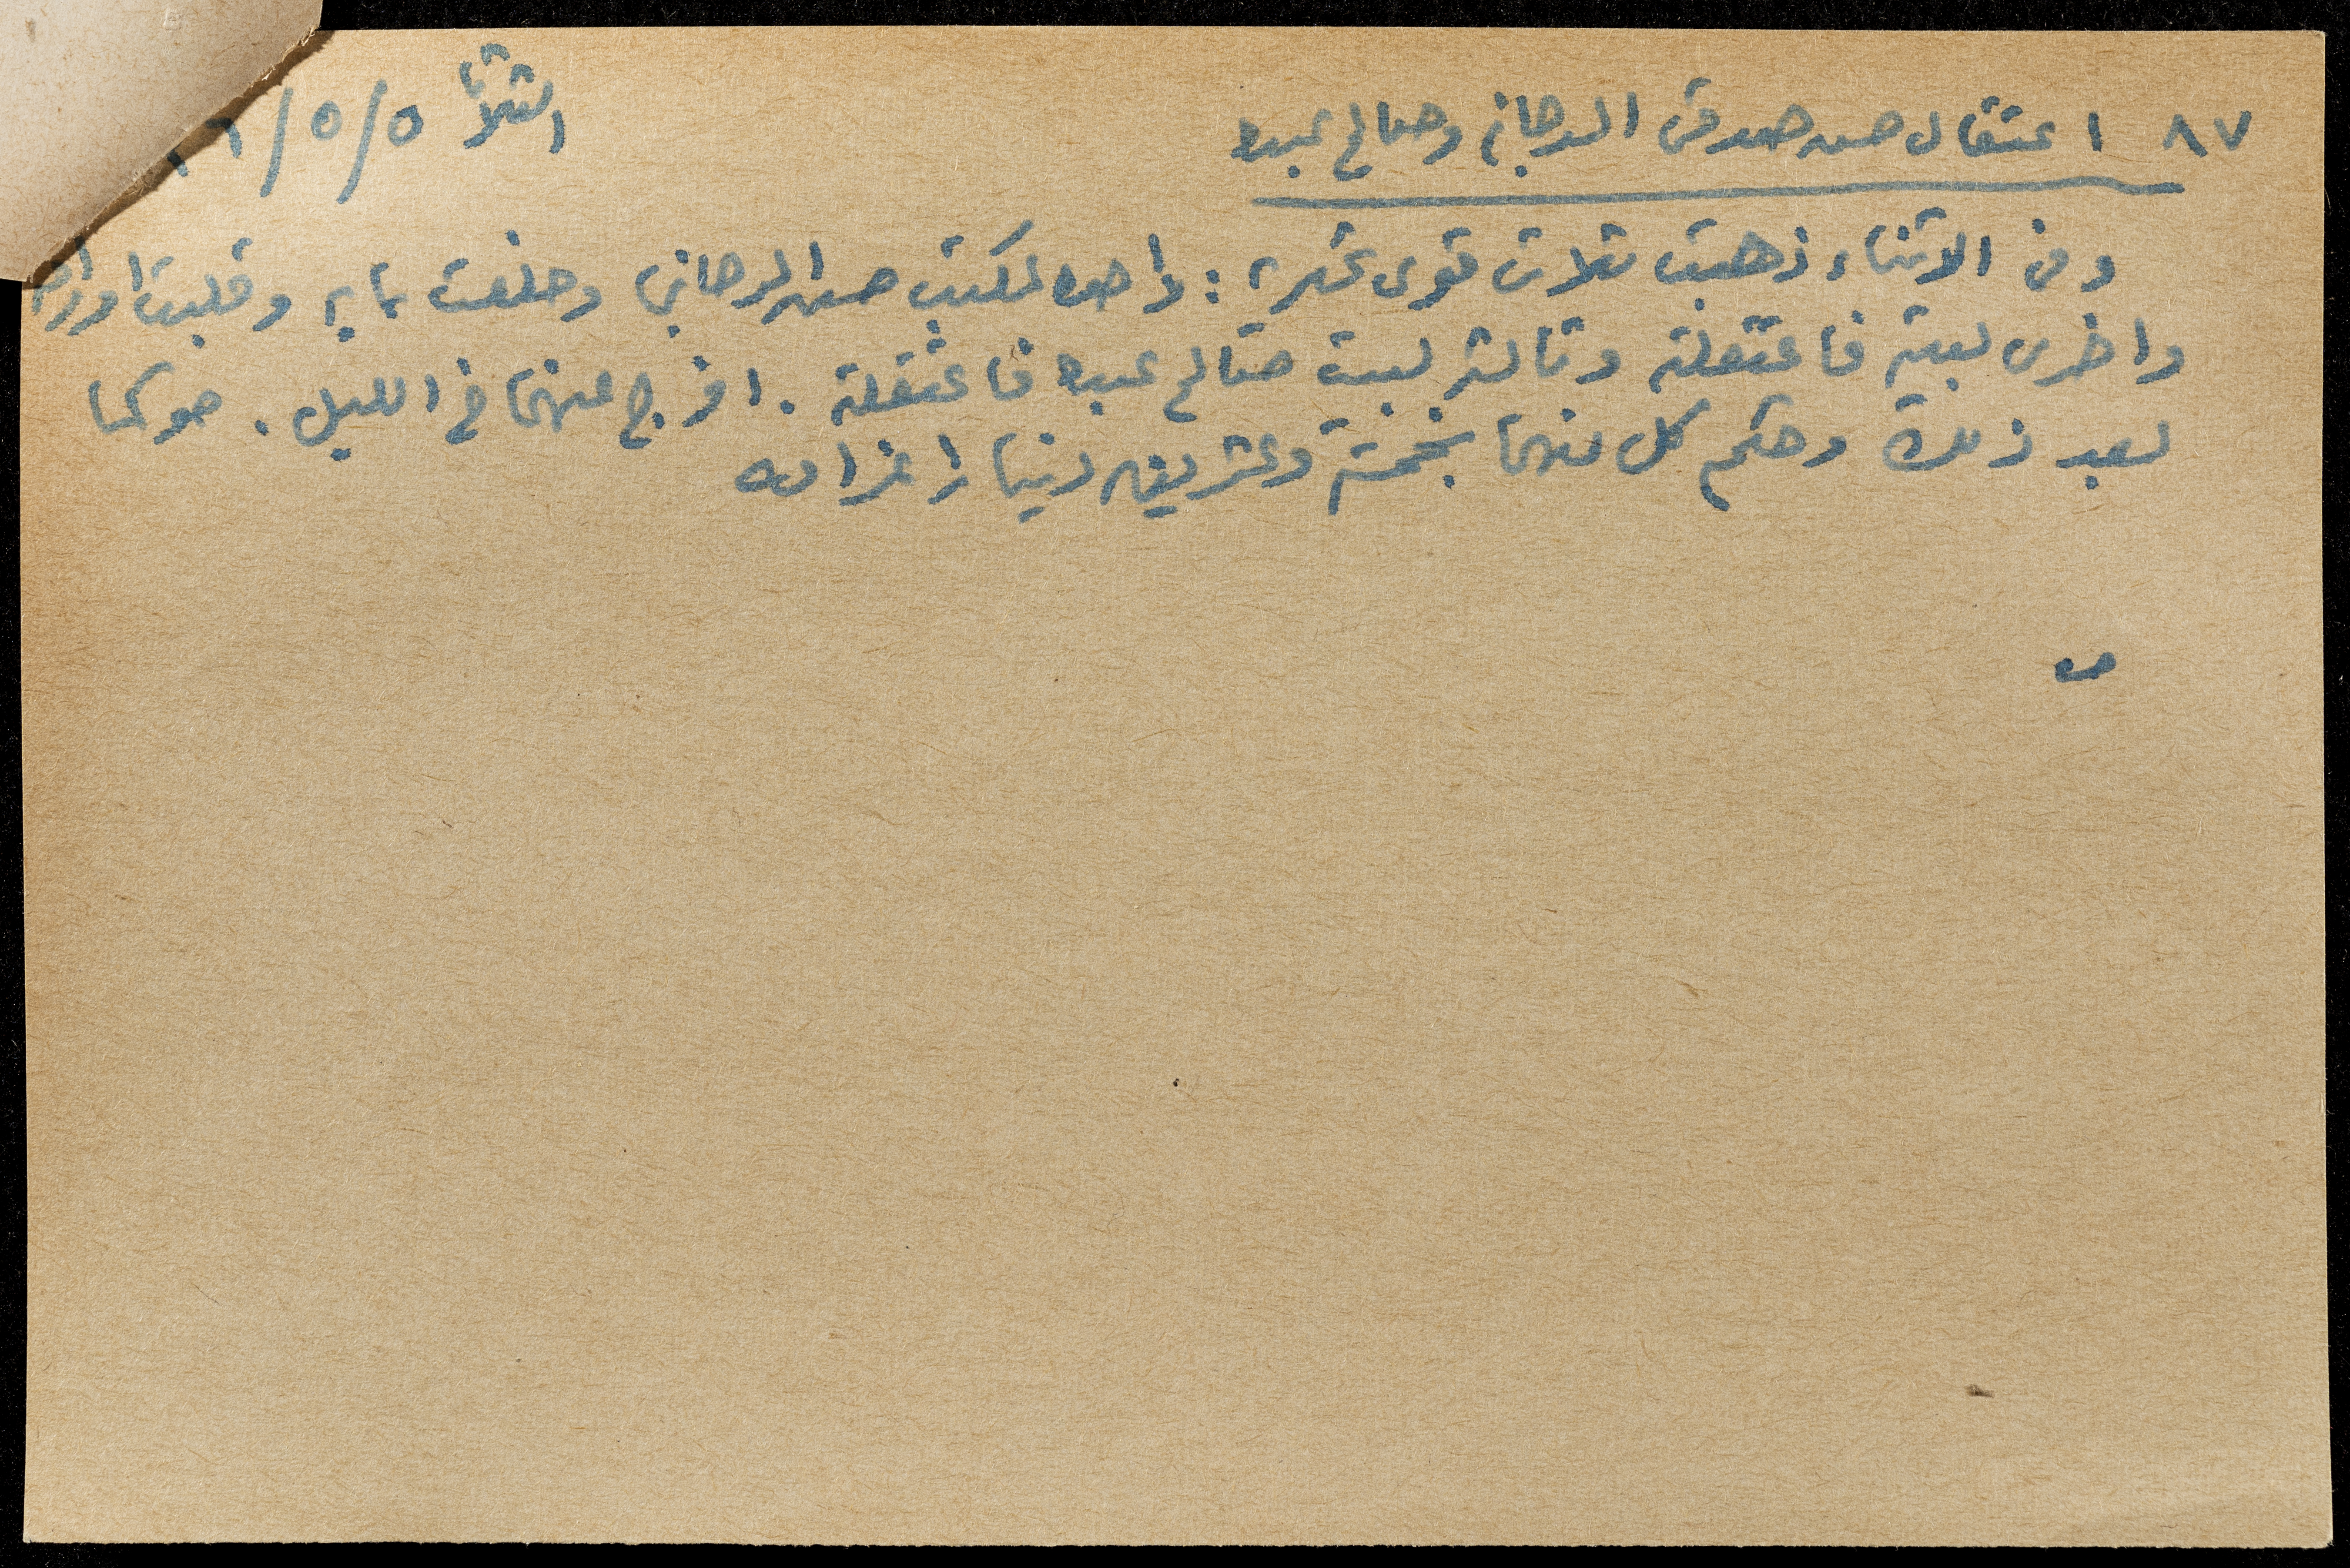 ٨٧ اعتقال حسن صدقي الدجاني وصالح عبده
الثلاثا ٥/٥/
وفي الاثناء ذهبت ثلاث قوى عسكرية : واحده لمكتب حسن الدجاني وخلعت بابه وقلبت اوراقه
واخرى لبيته فاعتقلته وثالثه لبيت صالح عبده فاعتقلته . افرج عنهما في الليل . حوكما
بعد ذلك وحكم كل منهما بخمسة وعشرين دينارا غرامه